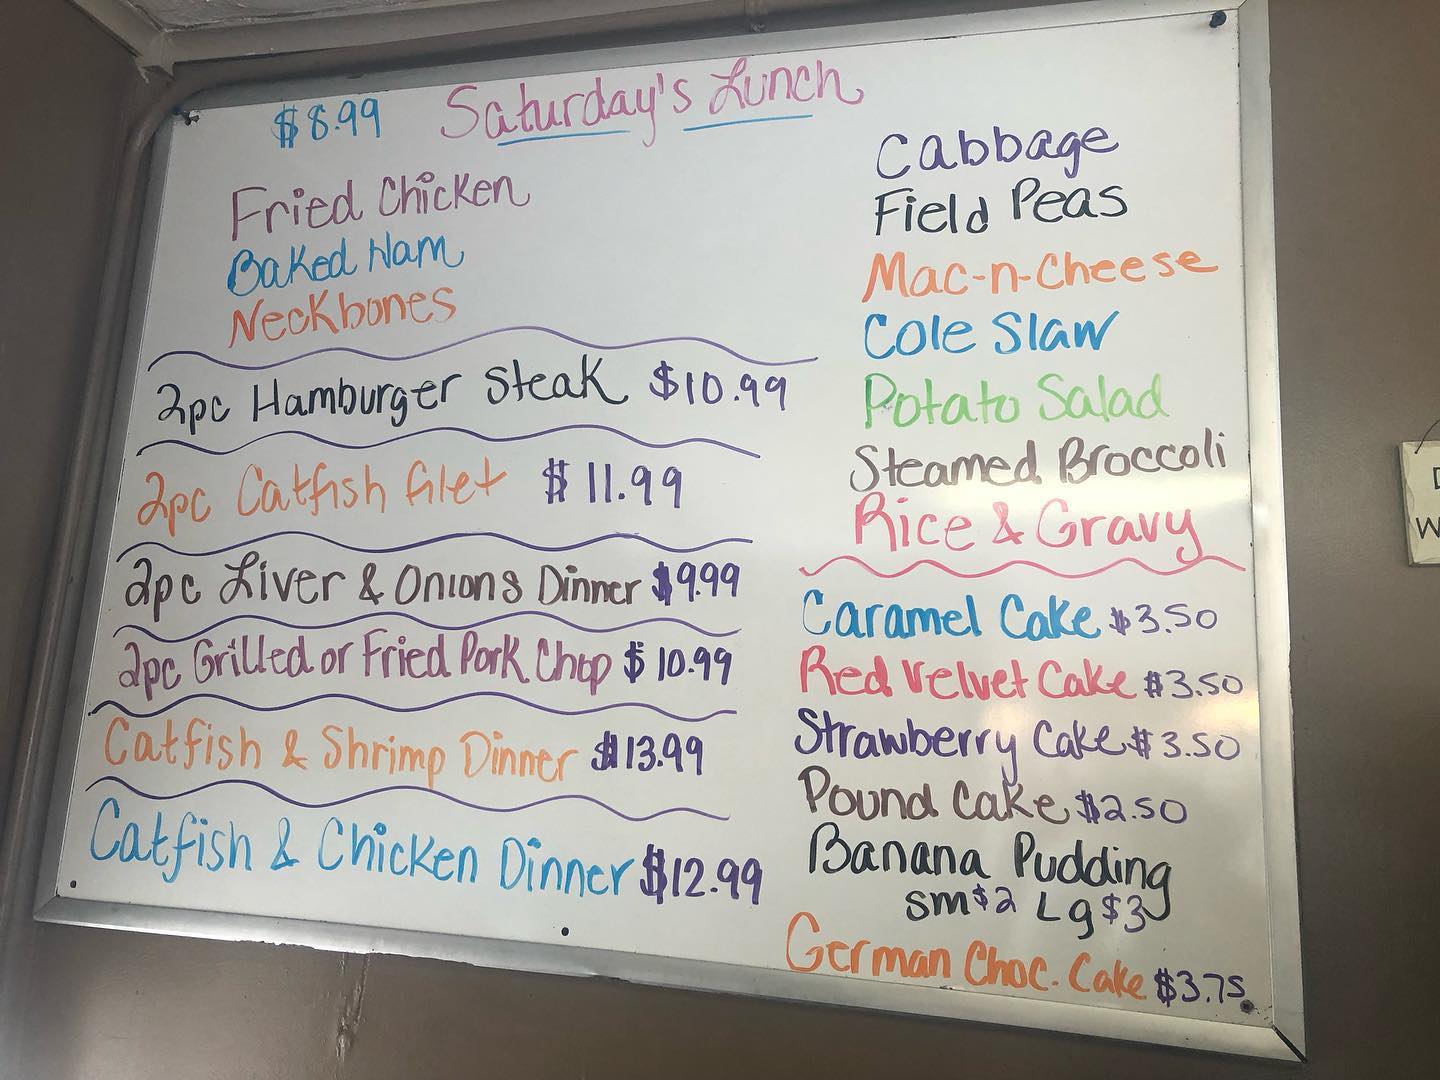 $8.99 Saturday's Lunch
Fried Chicken
Baked Ham
Neckbones
2pc Hamburger Steak $10.99
2pc Catfish filet $11.99
2pc Liver & Onions Dinner $9.99
2pc Grilled or Fried Pork Chop $10.99
Catfish & Shrimp Dinner $13.99
Catfish & Chicken Dinner $12.99
Cabbage
Field Peas
Mac-n-Cheese
Cole Slaw
Potato Salad
Steamed Broccoli
Rice & Gravy
Caramel Cake $3.50
Red Velvet Cake $3.50
Strawberry Cake $3.50
Pound Cake $2.50
Banana Pudding
sm $2 Lg $3
German Choc. Cake $3.75